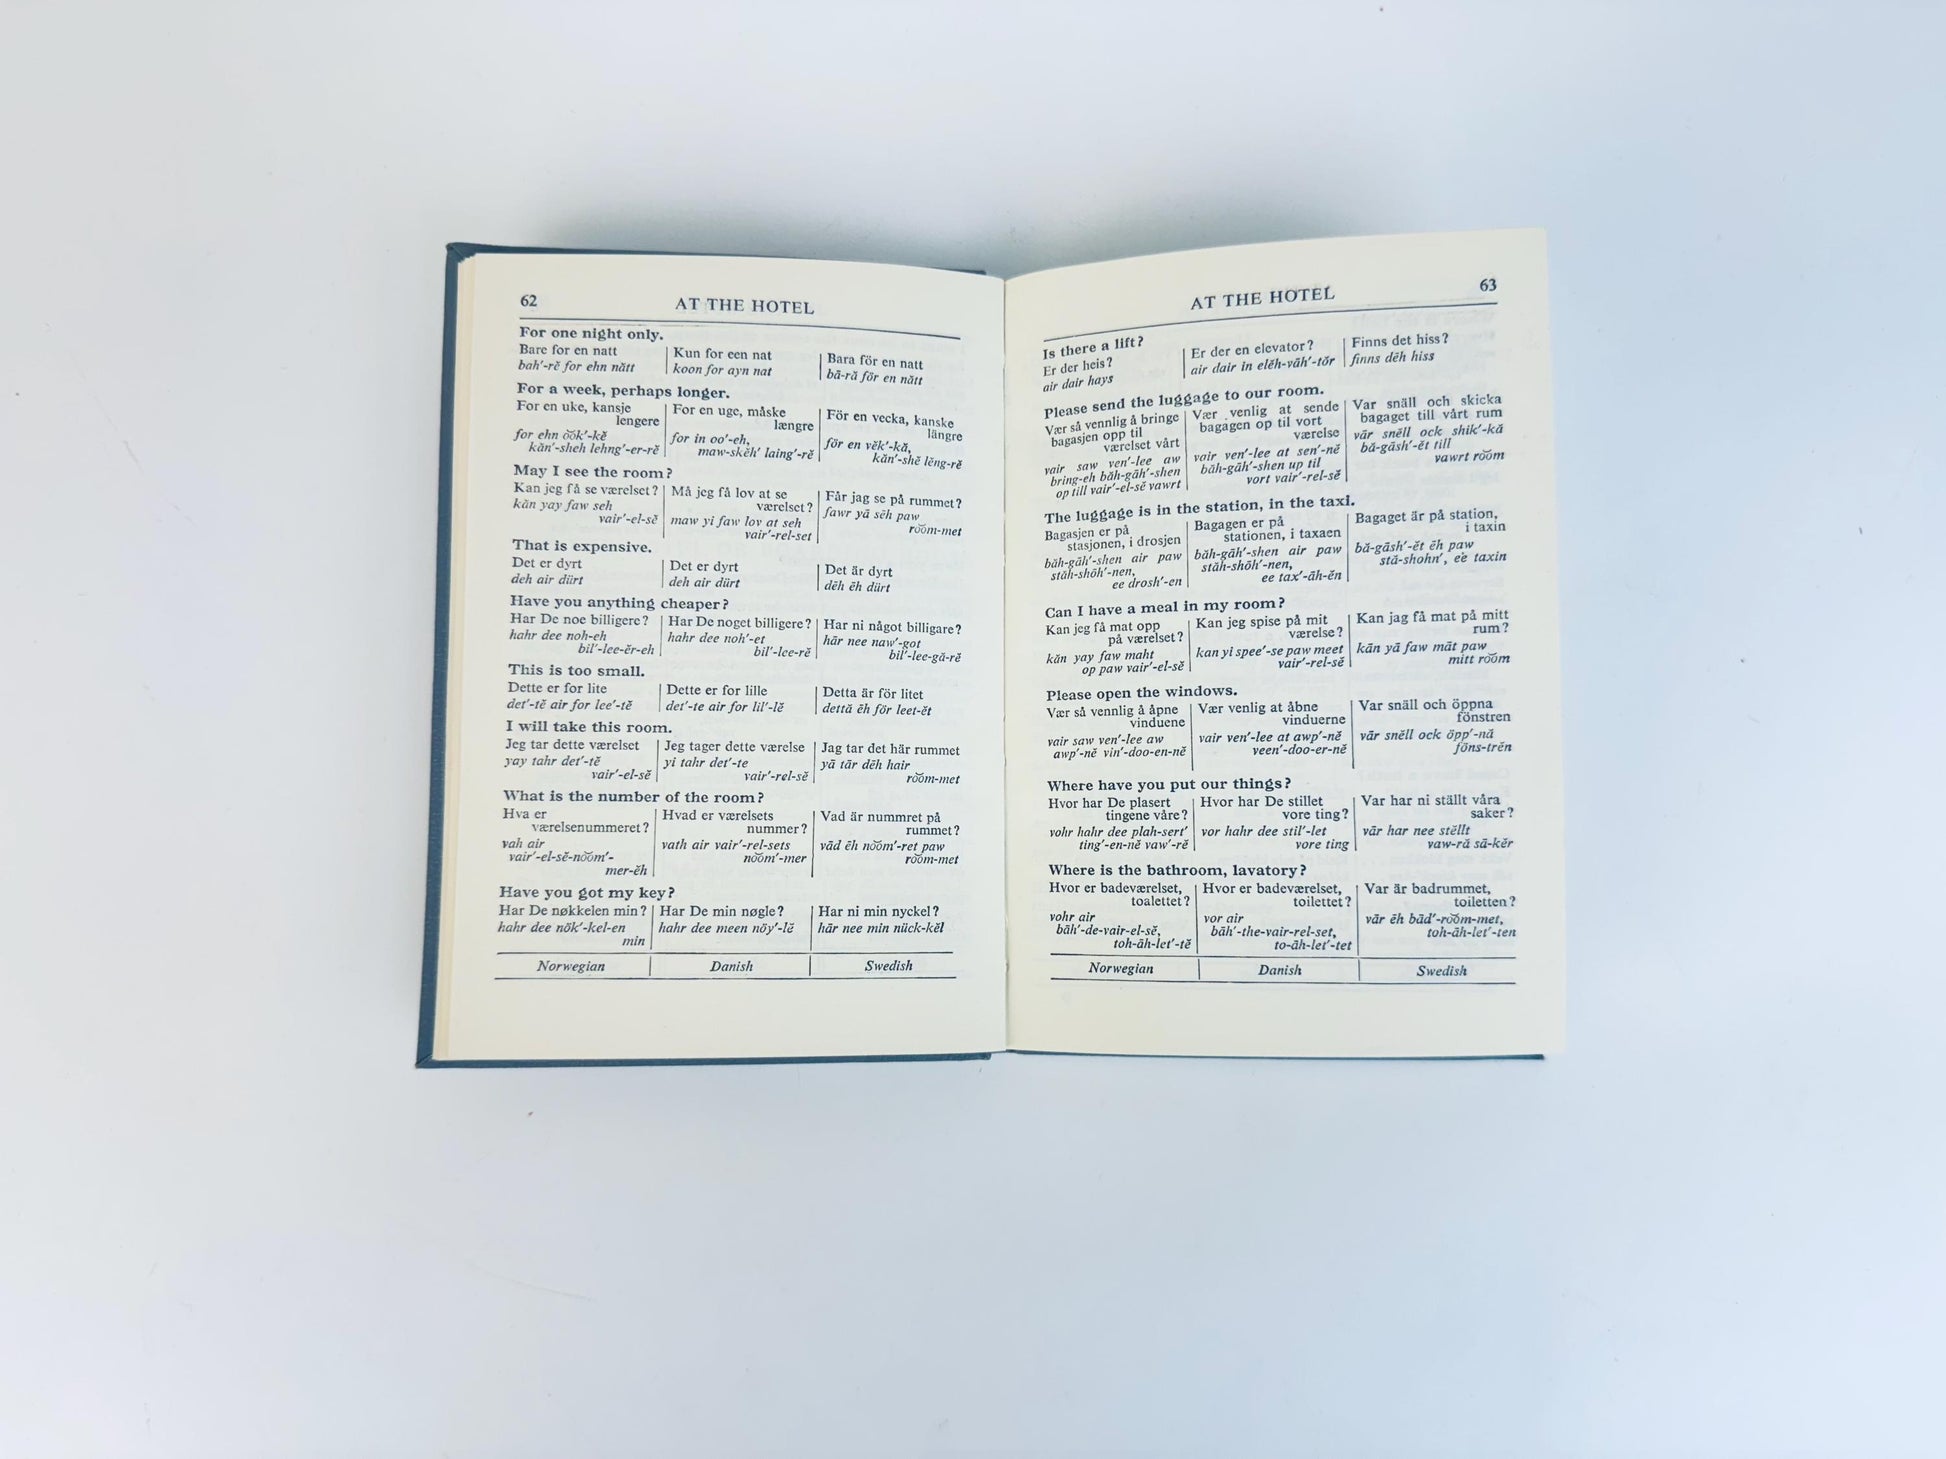 62
AT THE HOTEL
For one night only.
Bare for en natt
bah′-rĕ for ehn nătt
Kun for een nat
koon for ayn nat
Bara för en natt
bā-ră för en nătt
For a week, perhaps longer.
For en uke, kansje
lengere
for ehn o͝ok′-kĕ
kăn′-sheh lehng′-er-rĕ
For en uge, måske
længre
for in oo′-eh,
maw-skĕh′ laing′-rĕ
För en vecka, kanske
längre
för en vĕk′-kă,
kăn′-shĕ lĕng-rĕ
May I see the room?
Kan jeg få se værelset?
kăn yay faw seh
vair′-el-sĕ
Må jeg få lov at se
værelset?
maw yi faw lov at seh
vair′-rel-set
Får jag se på rummet?
fawr yā sēh paw
ro͝om-met
That is expensive.
Det er dyrt
deh air dürt
Det er dyrt
deh air dürt
Det är dyrt
dēh ēh dürt
Have you anything cheaper?
Har De noe billigere?
hahr dee noh-eh
bil′-lee-ĕr-eh
Har De noget billigere?
hahr dee noh′-et
bil′-lee-rĕ
Har ni något billigare?
hăr nee naw′-got
bil′-lee-gă-rĕ
This is too small.
Dette er for lite
det′-tĕ air for lee′-tĕ
Dette er for lille
det′-te air for lil′-lĕ
Detta är för litet
dettă ēh för leet-ĕt
I will take this room.
Jeg tar dette værelset
yay tahr det′-tĕ
vair′-el-sĕ
Jeg tager dette værelse
yi tahr det′-te
vair′-rel-sĕ
Jag tar det här rummet
yā tār dēh hair
ro͝om-met
What is the number of the room?
Hva er
værelsenummeret?
vah air
vair′-el-sĕ-no͝om′-
mer-ĕh
Hvad er værelsets
nummer?
vath air vair′-rel-sets
no͝om′-mer
Vad är nummret på
rummet?
vād ēh no͝om′-ret paw
ro͝om-met
Have you got my key?
Har De nøkkelen min?
hahr dee nök′-kel-en
min
Har De min nøgle?
hahr dee meen nöy′-lĕ
Har ni min nyckel?
hăr nee min nück-kĕl
Norwegian
Danish
Swedish
63
AT THE HOTEL
Is there a lift?
Er der heis?
air dair hays
Er der en elevator?
air dair in elĕh-vāh′-tŏr
Finns det hiss?
finns dēh hiss
Please send the luggage to our room.
Vær så vennlig å bringe
bagasjen opp til
værelset vårt
vair saw ven′-lee aw
bring-eh băh-gāh′-shen
op till vair′-el-sĕ vawrt
Vær venlig at sende
bagagen op til vort
værelse
vair ven′-lee at sen′-nĕ
băh-gāh′-shen up til
vort vair′-rel-sĕ
Var snäll och skicka
bagaget till vårt rum
vār snĕll ock shik′-kă
bă-gāsh′-ĕt till
vawrt ro͝om
The luggage is in the station, in the taxi.
Bagasjen er på
stasjonen, i drosjen
băh-gāh′-shen air paw
stăh-shōh′-nen,
ee drosh′-en
Bagagen er på
stationen, i taxaen
băh-gāh′-shen air paw
stăh-shōh′-nen,
ee tax′-āh-ĕn
Bagaget är på station,
i taxin
bă-gāsh′-ĕt ēh paw
stă-shohn′, ee taxin
Can I have a meal in my room?
Kan jeg få mat opp
på værelset?
kăn yay faw maht
op paw vair′-el-sĕ
Kan jeg spise på mit
værelse?
kan yi spee′-se paw meet
vair′-rel-sĕ
Kan jag få mat på mitt
rum?
kăn yā faw māt paw
mitt ro͝om
Please open the windows.
Vær så vennlig å åpne
vinduene
vair saw ven′-lee aw
awp′-nĕ vin′-doo-en-nĕ
Vær venlig at åbne
vinduerne
vair ven′-lee at awp′-nĕ
veen′-doo-er-nĕ
Var snäll och öppna
fönstren
vār snĕll ock öpp′-nă
föns-trĕn
Where have you put our things?
Hvor har De plasert
tingene våre?
vohr hahr dee plah-sert′
ting′-en-nĕ vaw′-rĕ
Hvor har De stillet
vore ting?
vor hahr dee stil′-let
vore ting
Var har ni ställt våra
saker?
vār har nee stĕllt
vaw-ră sā-kĕr
Where is the bathroom, lavatory?
Hvor er badeværelset,
toalettet?
vohr air
bāh′-de-vair-el-sĕ,
toh-āh-let′-tĕ
Hvor er badeværelset,
toilettet?
vor air
bāh′-the-vair-rel-set,
to-āh-let′-tet
Var är badrummet,
toiletten?
vār ēh bād′-ro͝om-met,
toh-āh-let′-ten
Norwegian
Danish
Swedish